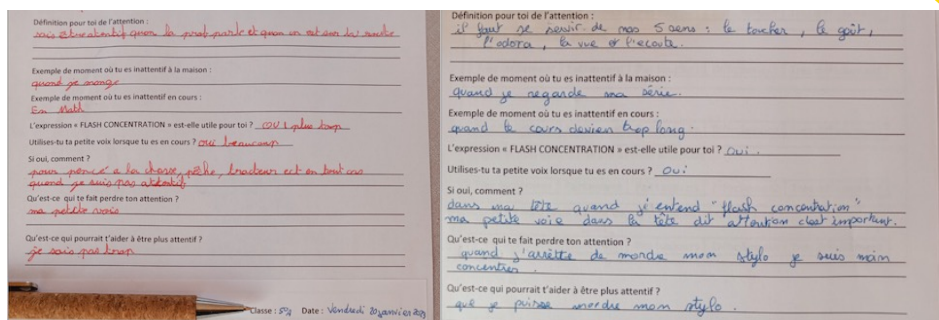 Définition pour toi de l'attention :
sais être atentif quon la prof parle et quon on est sur la route
Exemple de moment où tu es inattentif à la maison :
quand je mange
Exemple de moment où tu es inattentif en cours :
En Math
L'expression « FLASH CONCENTRATION » est-elle utile pour toi ? OUI plus
Utilises-tu ta petite voix lorsque tu es en cours ? oui beaucoup
Si oui, comment ?
pour poncé a la chasse, pêche, tracteur ect en tout cas
quand je suis pas attentif
Qu'est-ce qui te fait perdre ton attention ?
ma petite voix
Qu'est-ce qui pourrait t'aider à être plus attentif ?
je sais pas
Classe : 5% Date : Vendredi 20 janvier
Définition pour toi de l'attention :
il faut se servir de nos 5 sens : le toucher, le goût,
l'odora, la vue et l'ecoute.
Exemple de moment où tu es inattentif à la maison :
quand je regarde ma série.
Exemple de moment où tu es inattentif en cours :
quand le cours devien trop long.
L'expression « FLASH CONCENTRATION » est-elle utile pour toi ? Oui.
Utilises-tu ta petite voix lorsque tu es en cours ? Oui
Si oui, comment ?
dans ma tête quand j'entend "flash concentration"
ma petite voie dans la tête dit attention c'est important.
Qu'est-ce qui te fait perdre ton attention ?
quand j'arrètte de mordre mon stylo je suis moin
concentrer.
Qu'est-ce qui pourrait t'aider à être plus attentif ?
que je puisse mordre mon stylo.